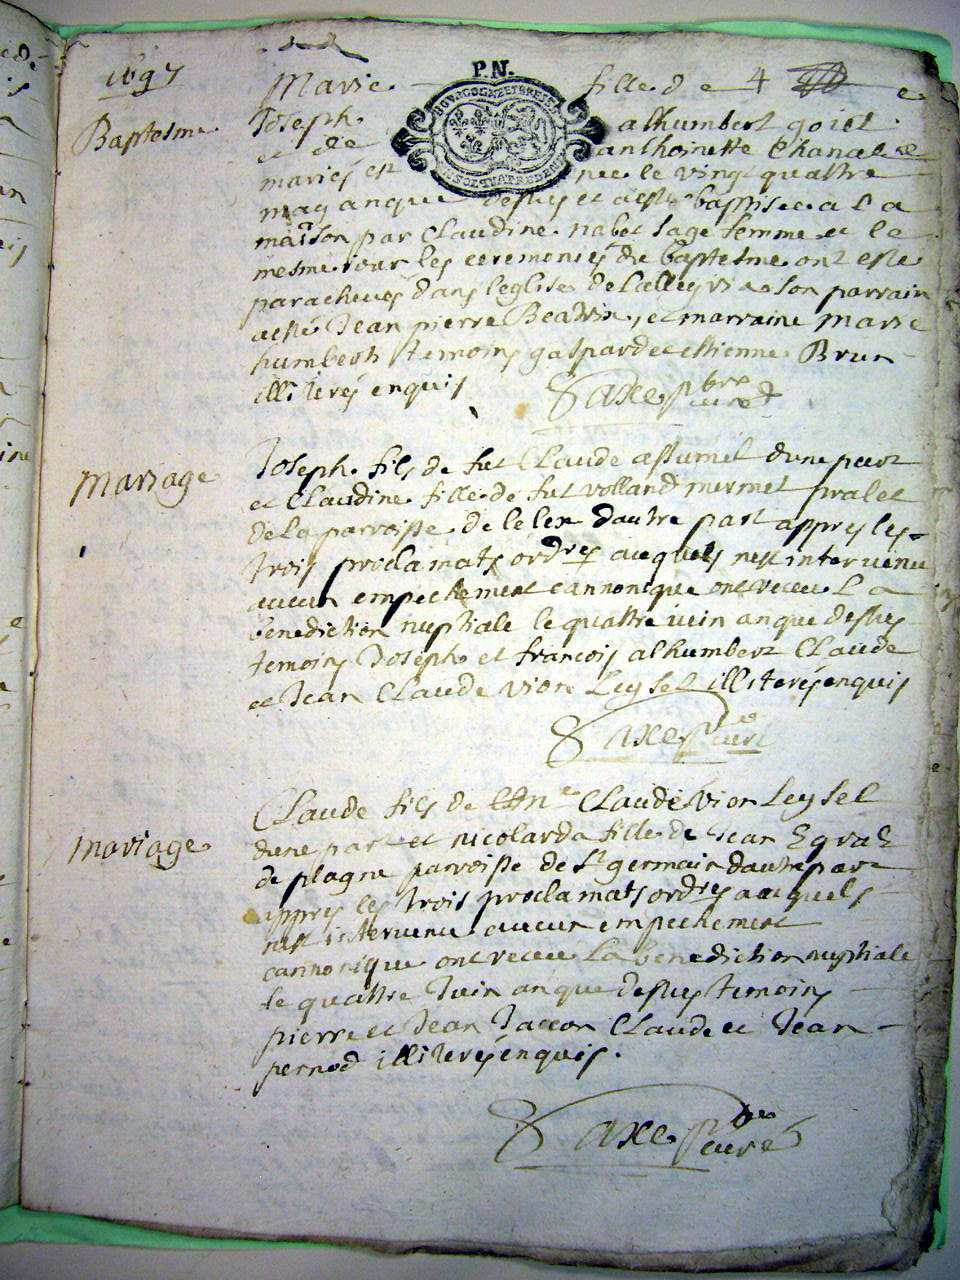 1697
P.N.
Baptesme
Marie fille d e 4 e
Joseph alhumbert goiet
et de anthoinette Chana
mariés est nee le vingt quattre
may anque desus et a esté baptisee a la
maison par Claudine nabot sage femme et le
mesme iour les ceremonies du baptesme ont esté
paracheves dans leglise de Lalleyria son parrain
a esté Jean pierre Beatrix, et marraine marie
humbert temoins gaspard et estienne Brun
illiterés enquis
Saxe pbre curé
Mariage
Joseph fils de fut Claude assumel dune part
et Claudine fille de fut rolland mermet pralet
de la parroisse de lelex dautre part appres les
trois proclamats ordres auquels nest intervenu
aucun empechement cannonique ont receu La
benediction nuptiale le quattre iuin anque desus
temoins Joseph et francois alhumbert Claude
et Jean Claude Vion Leysel illiterés enquis
Saxe curé
Mariage
Claude fils de Claude Vion Leysel
dune part et nicolarda fille de Jean Egraz
de plagne parroisse de St germain dautre part
appres les trois proclamats ordres auquels
nest intervenu aucun empechement
cannonique ont receu La benediction nuptiale
le quattre Juin anque desus temoins
pierre et Jean Jacon Claude et Jean
pernod illiterés enquis.
Saxe pbre curé